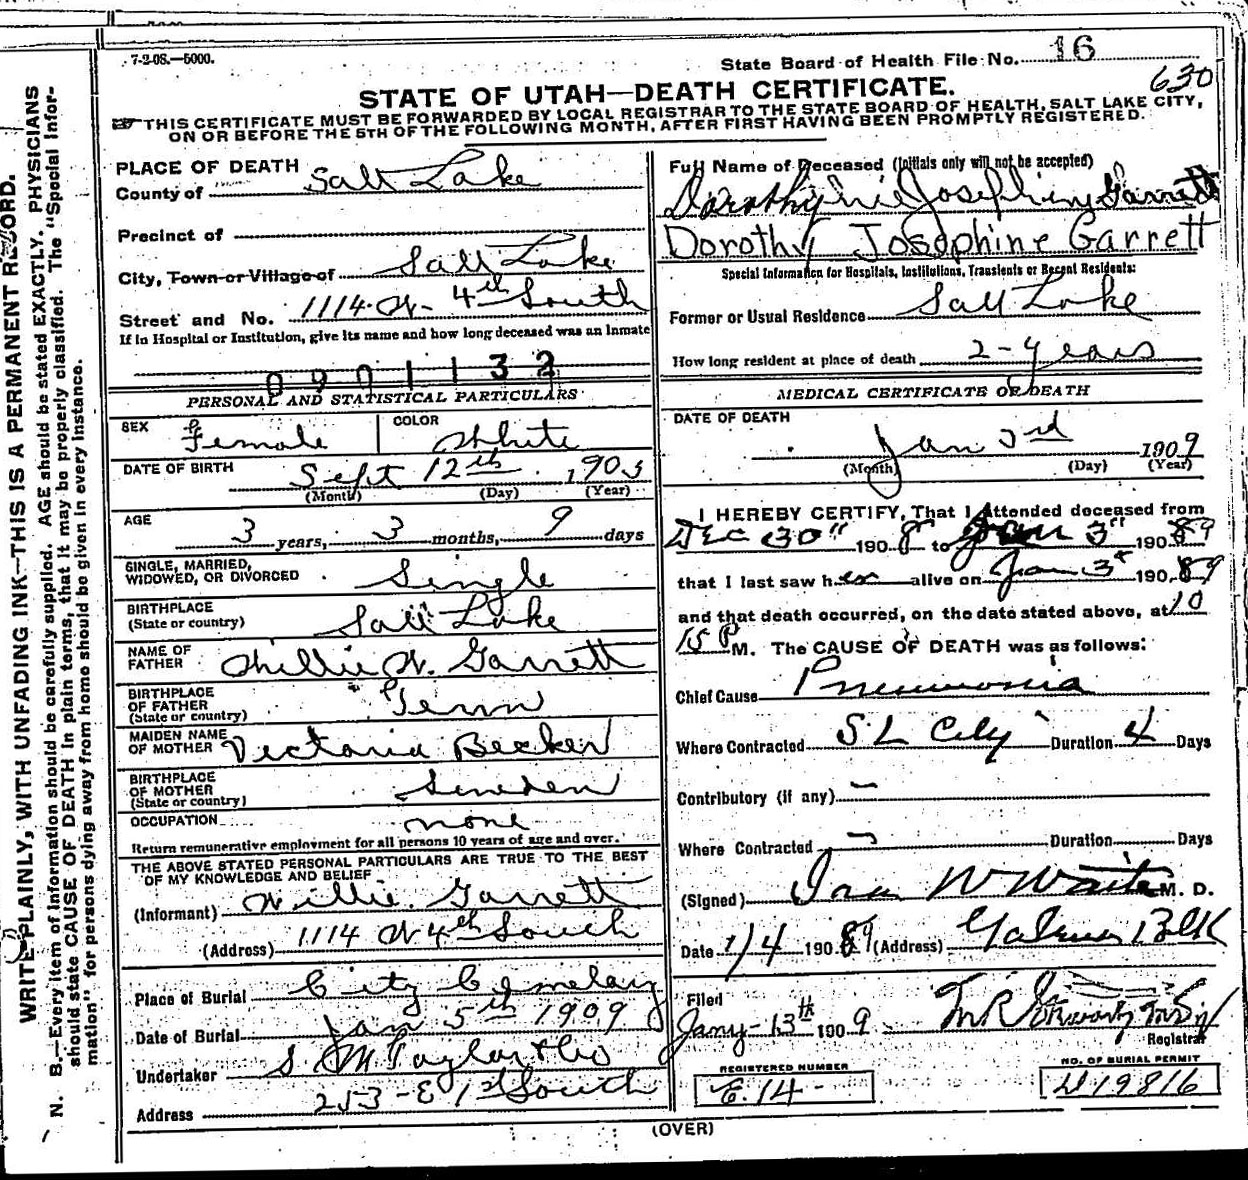 7-2-08.—5000.
State Board of Health File No. 16
630
STATE OF UTAH—DEATH CERTIFICATE.
THIS CERTIFICATE MUST BE FORWARDED BY LOCAL REGISTRAR TO THE STATE BOARD OF HEALTH, SALT LAKE CITY,
ON OR BEFORE THE 5TH OF THE FOLLOWING MONTH, AFTER FIRST HAVING BEEN PROMPTLY REGISTERED.
WRITE PLAINLY, WITH UNFADING INK—THIS IS A PERMANENT RECORD.
N. B.—Every item of information should be carefully supplied. AGE should be stated EXACTLY. PHYSICIANS
should state CAUSE OF DEATH in plain terms, that it may be properly classified. The "Special Infor-
mation" for persons dying away from home should be given in every instance.
PLACE OF DEATH
County of Salt Lake
Precinct of
City, Town or Village of Salt Lake
Street and No. 1114 W- 4th South
If in Hospital or Institution, give its name and how long deceased was an Inmate
0901132
PERSONAL AND STATISTICAL PARTICULARS
SEX Female COLOR White
DATE OF BIRTH Sept 12th 1905
(Month) (Day) (Year)
AGE 3 years, 3 months, 9 days
SINGLE, MARRIED,
WIDOWED, OR DIVORCED Single
BIRTHPLACE
(State or country) Salt Lake
NAME OF
FATHER Willie W. Garrett
BIRTHPLACE
OF FATHER
(State or country) Tenn
MAIDEN NAME
OF MOTHER Victoria Becker
BIRTHPLACE
OF MOTHER
(State or country) Sweden
OCCUPATION none
Return remunerative employment for all persons 10 years of age and over.
THE ABOVE STATED PERSONAL PARTICULARS ARE TRUE TO THE BEST
OF MY KNOWLEDGE AND BELIEF
(Informant) Willie Garrett
(Address) 1114 W 4th South
Place of Burial City Cemetary
Date of Burial Jan 5th 1909
Undertaker S. M Taylor & Co
Address 253 - E 1st South
Full Name of Deceased (Initials only will not be accepted)
Josephine Garrett
Dorothy Josephine Garrett
Special Information for Hospitals, Institutions, Transients or Recent Residents:
Former or Usual Residence Salt Lake
How long resident at place of death 2-years
MEDICAL CERTIFICATE OF DEATH
DATE OF DEATH
Jan 3rd 1909
(Month) (Day) (Year)
I HEREBY CERTIFY, That I Attended deceased from
Dec 30" 190 8 to Jan 3" 190 9
that I last saw her alive on Jan 3" 190 9
and that death occurred, on the date stated above, at 10
15 P M. The CAUSE OF DEATH was as follows:
Chief Cause Pneumonia
Where Contracted S L City Duration 4 Days
Contributory (if any) —
Where Contracted — Duration Days
(Signed) M. D.
Date 1/4 190 9 (Address)
Filed
Jany-13th 190 9
Registrar
REGISTERED NUMBER
E.14-
NO. OF BURIAL PERMIT
19816
(OVER)